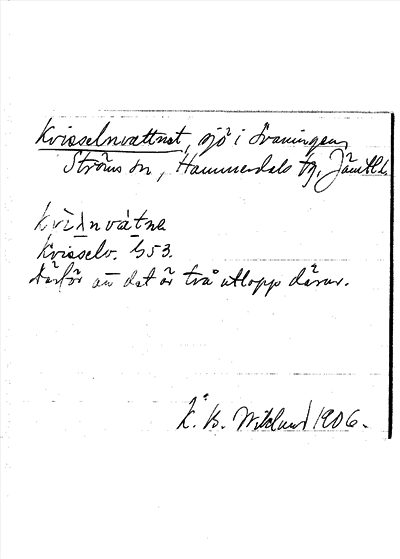 Kvisselnvattnet, sjö i Svaningen,
Ströms sn, Hammerdals tg, Jämtl.
Kvisselv. G53.
Därför att det är två utlopp därur.
K. B. Wiklund 1906.